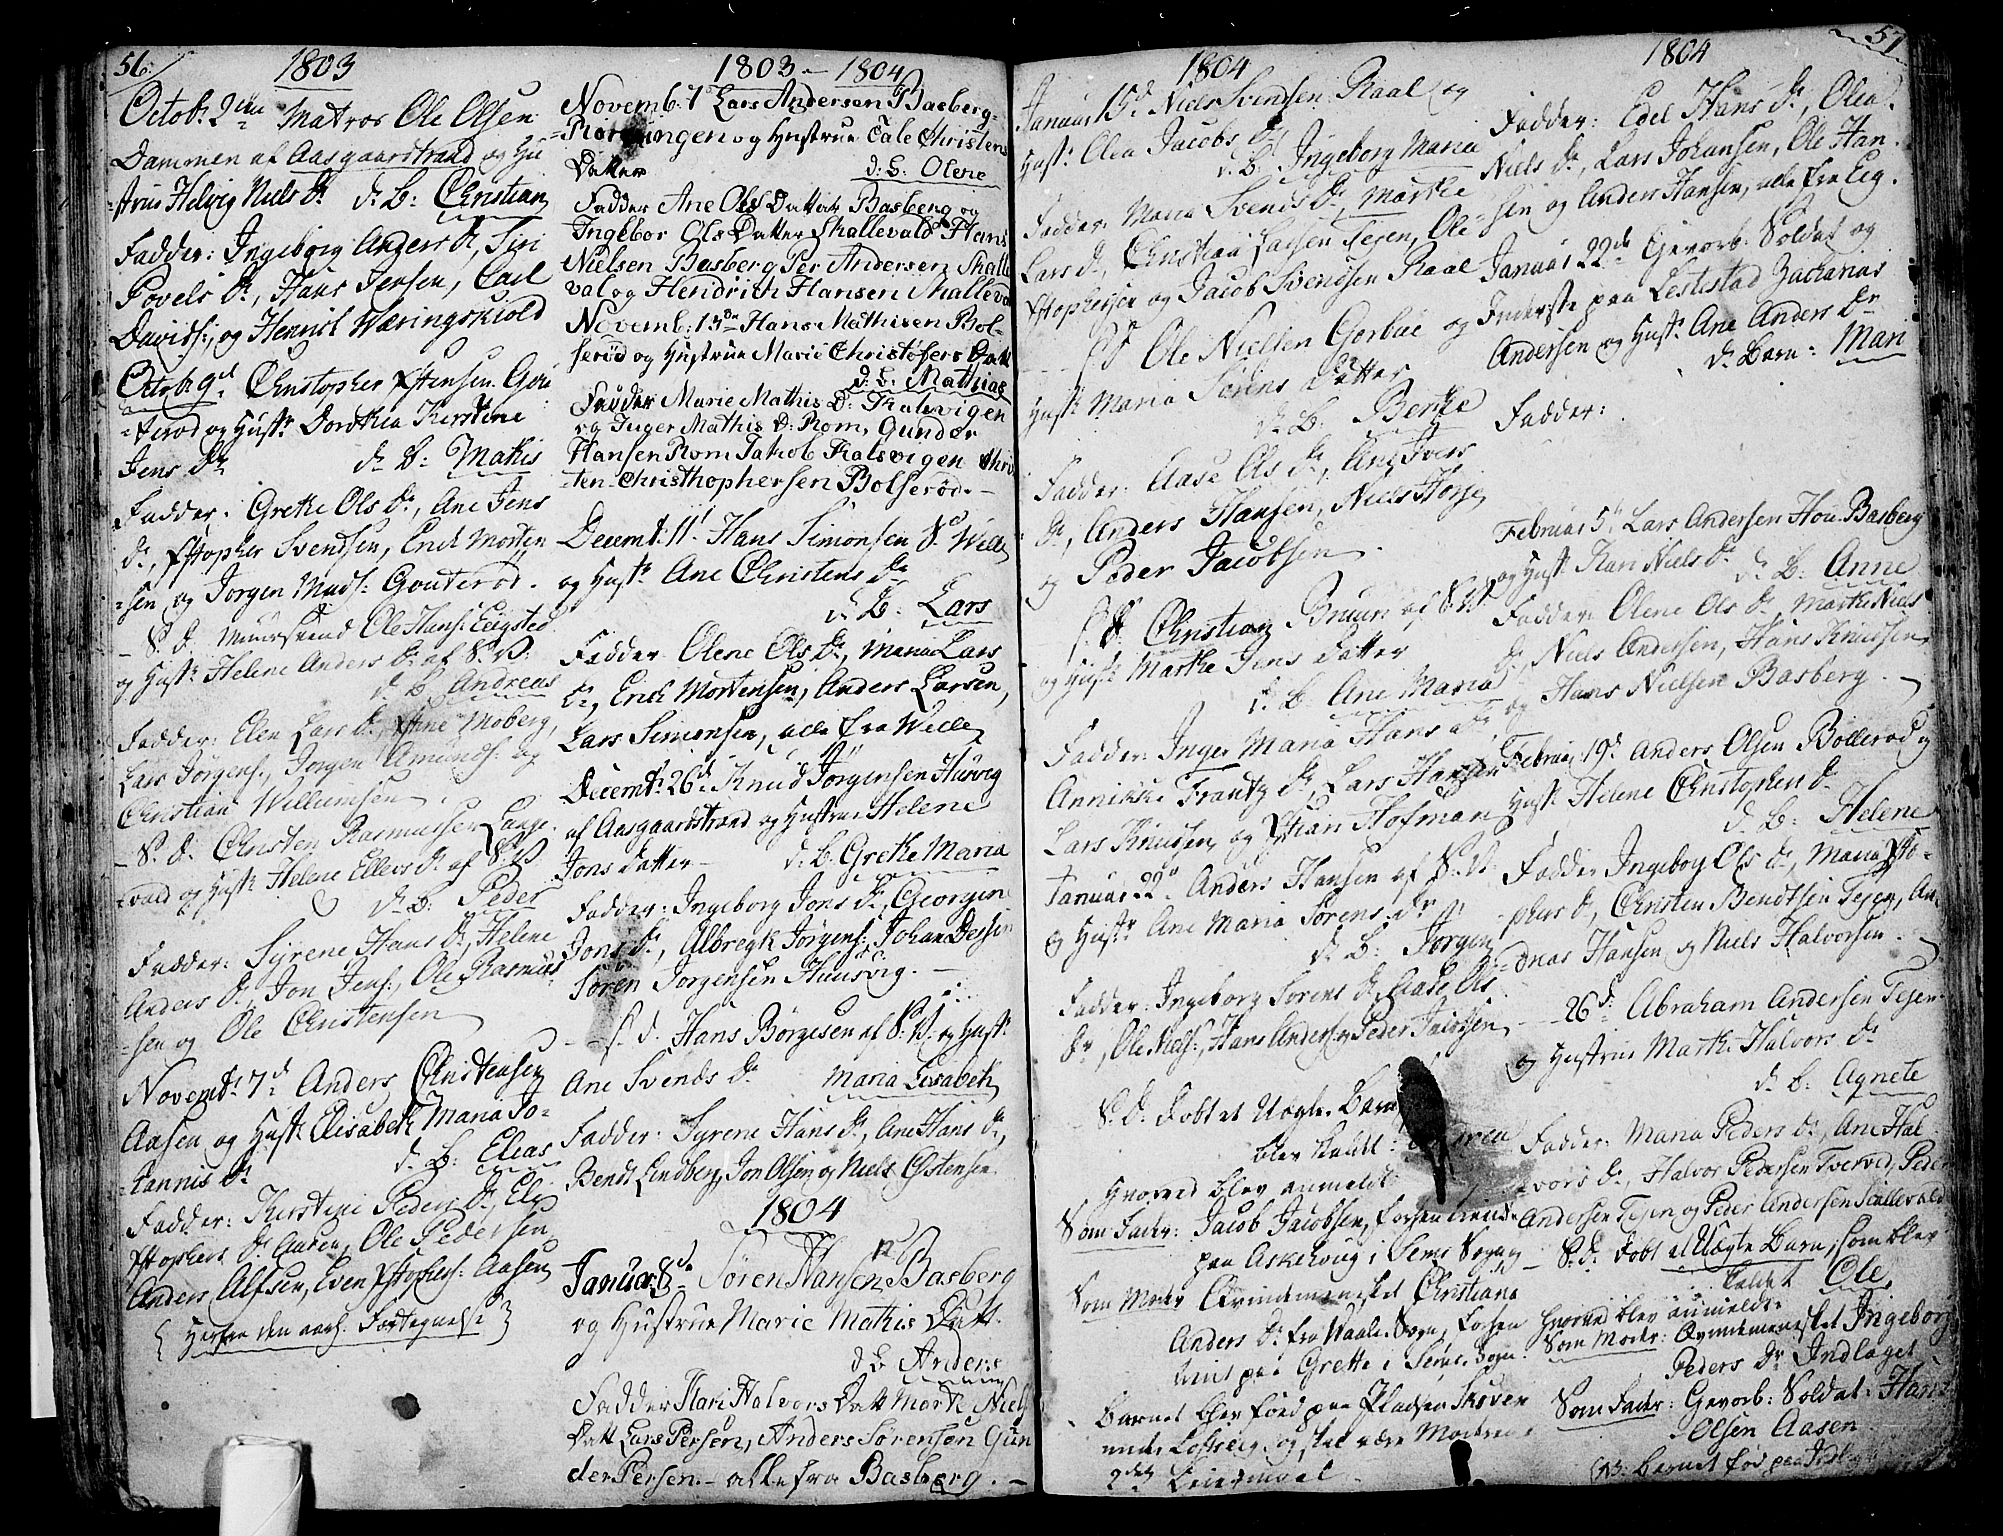 56.
1803
Octob: 2den Matros Ole Olsen
Dammen af Aasgaardstrand og Hu
=strue Helvig Niels Dr. d: B: Christian
Fadder: Ingeborg Anders Dr, Siri
Povels Dr, Hans Jensen, Carl
Davids:, og Henrich Wæringskiold
Octob: 9d. Christopher Estensen Gou
=terød og Hustr: Dorothea Kirstine
Jens Dr. d: B: Mathis
Fadder: Grethe Ols Dr, Ane Jens
Dr, Xstopher Svendsen, Erich Morten
=sen og Jørgen Mads: Gouterød.
S. D. Ole Hans: Eeigsted
og Hustr: Helene Anders Dr. af S.V:
d: B: Andreas
Fadder: Elen Lars Dr, Moberg,
Lars Jørgens:, Jørgen Amunds: og
Christian Willumsen
S. D. Christen Rasmussen Lange
vald og Hustr: Helene Ellevs Dr. af S.V
d: B: Peder
Fadder: Syrene Hans Dr, Helene
Anders Dr, Jon Jens:, Ole Rasmus
=sen og Ole Christensen
Novemb: 7d. Anders Christensen
Aasen og Hustr: Elisabeth Maria Jo-
hannis Dr. d: B: Elias
Fadder: Kirstine Peders Dr, Eli
Xstophers Dr Aasen, Ole Pedersen
Anders Alfsen, Even Xstophers: Aasen
{ Herfra den aarl. Fortegnelse }
1803 - 1804
Novemb: 7de Lars Andersen Basberg-
Rørvingen og Hustrue Tale Christens
Datter d: B: Olene
Fadder Ane Ols Datter Basberg og
Ingebor Ols Datter Skallevald Hans
Nielsen Basberg Per Andersen Skalle
val og Hendrich Hansen Skalleval
Novemb: 13de Hans Mathisen Bol-
serød og Hustrue Marie Christofers Datt
d: B: Mathias
Fadder Marie Mathis D: Kalsvigen
og Inger Mathis D: Rom, Gunder
Hansen Rom Jakob Kalsvigen Chris
=ten Christhophersen Bolserød.-
Decemb: 11t. Hans Simonsen S. Welle
og Hustr: Ane Christens Dr
d: B: Lars
Fadder: Olene Ols Dr, Maria Lars
Dr, Erich Mortensen, Anders Larsen,
Lars Simensen, alle fra Welle
Decemb: 26d. Knud Jørgensen Husvig
af Aasgaardstrand og Hustrue Helene
Jons Datter - d: B: Grethe Maria
Fadder: Ingeborg Jons Dr, Georgin
Jons Dr, Albregt Jørgens:, Johan
Søren Jørgensen Huusvig. -
S. d. Hans Børgesen af S.V. og Hustr:
Ane Svends Dr. Maria Lisabeth
Fadder: Syrene Hans Dr, Ane Hans Dr,
Bendt Lindberg, Jon Olsen og Niels Estensen
1804
Januar: 8de Søren Hansen Basberg
og Hustrue Marie Mathis Datt.
d: B: Anders
Fadder Kari Halvors Datt Marthe Niels
Datt Lars Persen, Anders Sørensen Gun
der Persen. - alle fra Basberg. -
1804
Januar 15d. Niels Svendsen Raal og
Hustr: Olea Jacobs Dr
d: B: Ingeborg Maria
Fadder: Maria Svends Dr, Marthe
Lars Dr, Christian Larsen Tejen, Ole
Xstophersen og Jacob Svendsen Raal
S.D. Ole Nielsen Gorbue og
Hustr: Maria Sørens Datter
d: B: Berthe
Fadder: Aase Ols Dr, Ane Ivers
Dr, Anders Hansen, Niels
og Peder Jacobsen.
S. D. Christian Bruun af S.V.
og Hustr: Marthe Jens Datter
d: B. Ane Maria
Fadder: Inger Maria Hans Dr,
Annikke Frantz Dr, Lars Hansen
Lars Knudsen, og Xstian Hofman
Januar 22d. Anders Hansen af S.V.
og Hustr: Ane Maria Sørens Dr
d: B: Jørgen
Fadder: Ingeborg Sørens Dr, Aase Ols
Dr, Ole Niels:, Hans Anders: og Peder Jacobsen
S. D. døbt et Uægte Barn
blev kaldet:
Hvorved blev anmeldt
Som Fader: Jacob Jacobsen, forhen tienende
paa Askehoug i Sems Sogn
Som Moder Qvindemennesket Christiane
Anders Dr. fra Vaale Sogn, forhen
tient paa Grette i Sems Sogn.
Barnet blev fød paa Pladsen Skoven
under Løfteeig, og skal være Moderens
2det Leiermaal
57
1804
Fadder: Edel Hans Dr, Olea
Niels Dr, Lars Johansen, Ole Han-
=sen og Anders Hansen, alle fra Eeg.
Januar 22de Gevorb: Soldat og
Inderste paa Lestestad Zacharias
Andersen og Hustr: Ane Anders Dr
d: Barn: Mari
Fadder:
Februar 5d. Lars Andersen Hou Basberg
og Hustr: Kari Niels Dr
d: B: Anne
Fadder: Olene Ols Dr, Marthe Niels
Dr, Niels Andersen, Hans Knudsen,
og Hans Nielsen Basberg.
Februar 19d. Anders Olsen Bollerød og
Hustr: Helene Christophers Dr
d: B: Helene
Fadder Ingeborg Ols Dr, Maria Xsto-
phers Dr, Christen Bendtsen Tejen, An-
=dreas Hansen og Niels Halvorsen.
- 26d. Abraham Andersen Tejen
og Hustrue Marthe Halvors Dr
d: B: Agnete
Fadder: Maria Peders Dr, Ane Hal-
vors Dr, Halvor Pedersen Tverved, Peder
Andersen Tejen og Peder Andersen Skallevald
- S. d. døbt et Uægte Barn, som blev
kaldet Ole
Hvorved blev anmeldt
Som Moder: Qvindemennesket Ingeborg
Peders Dr Indlaget
Som Fader: Gevorb: Soldat Hans
Olsen Aasen
NB: Barnet fød paa